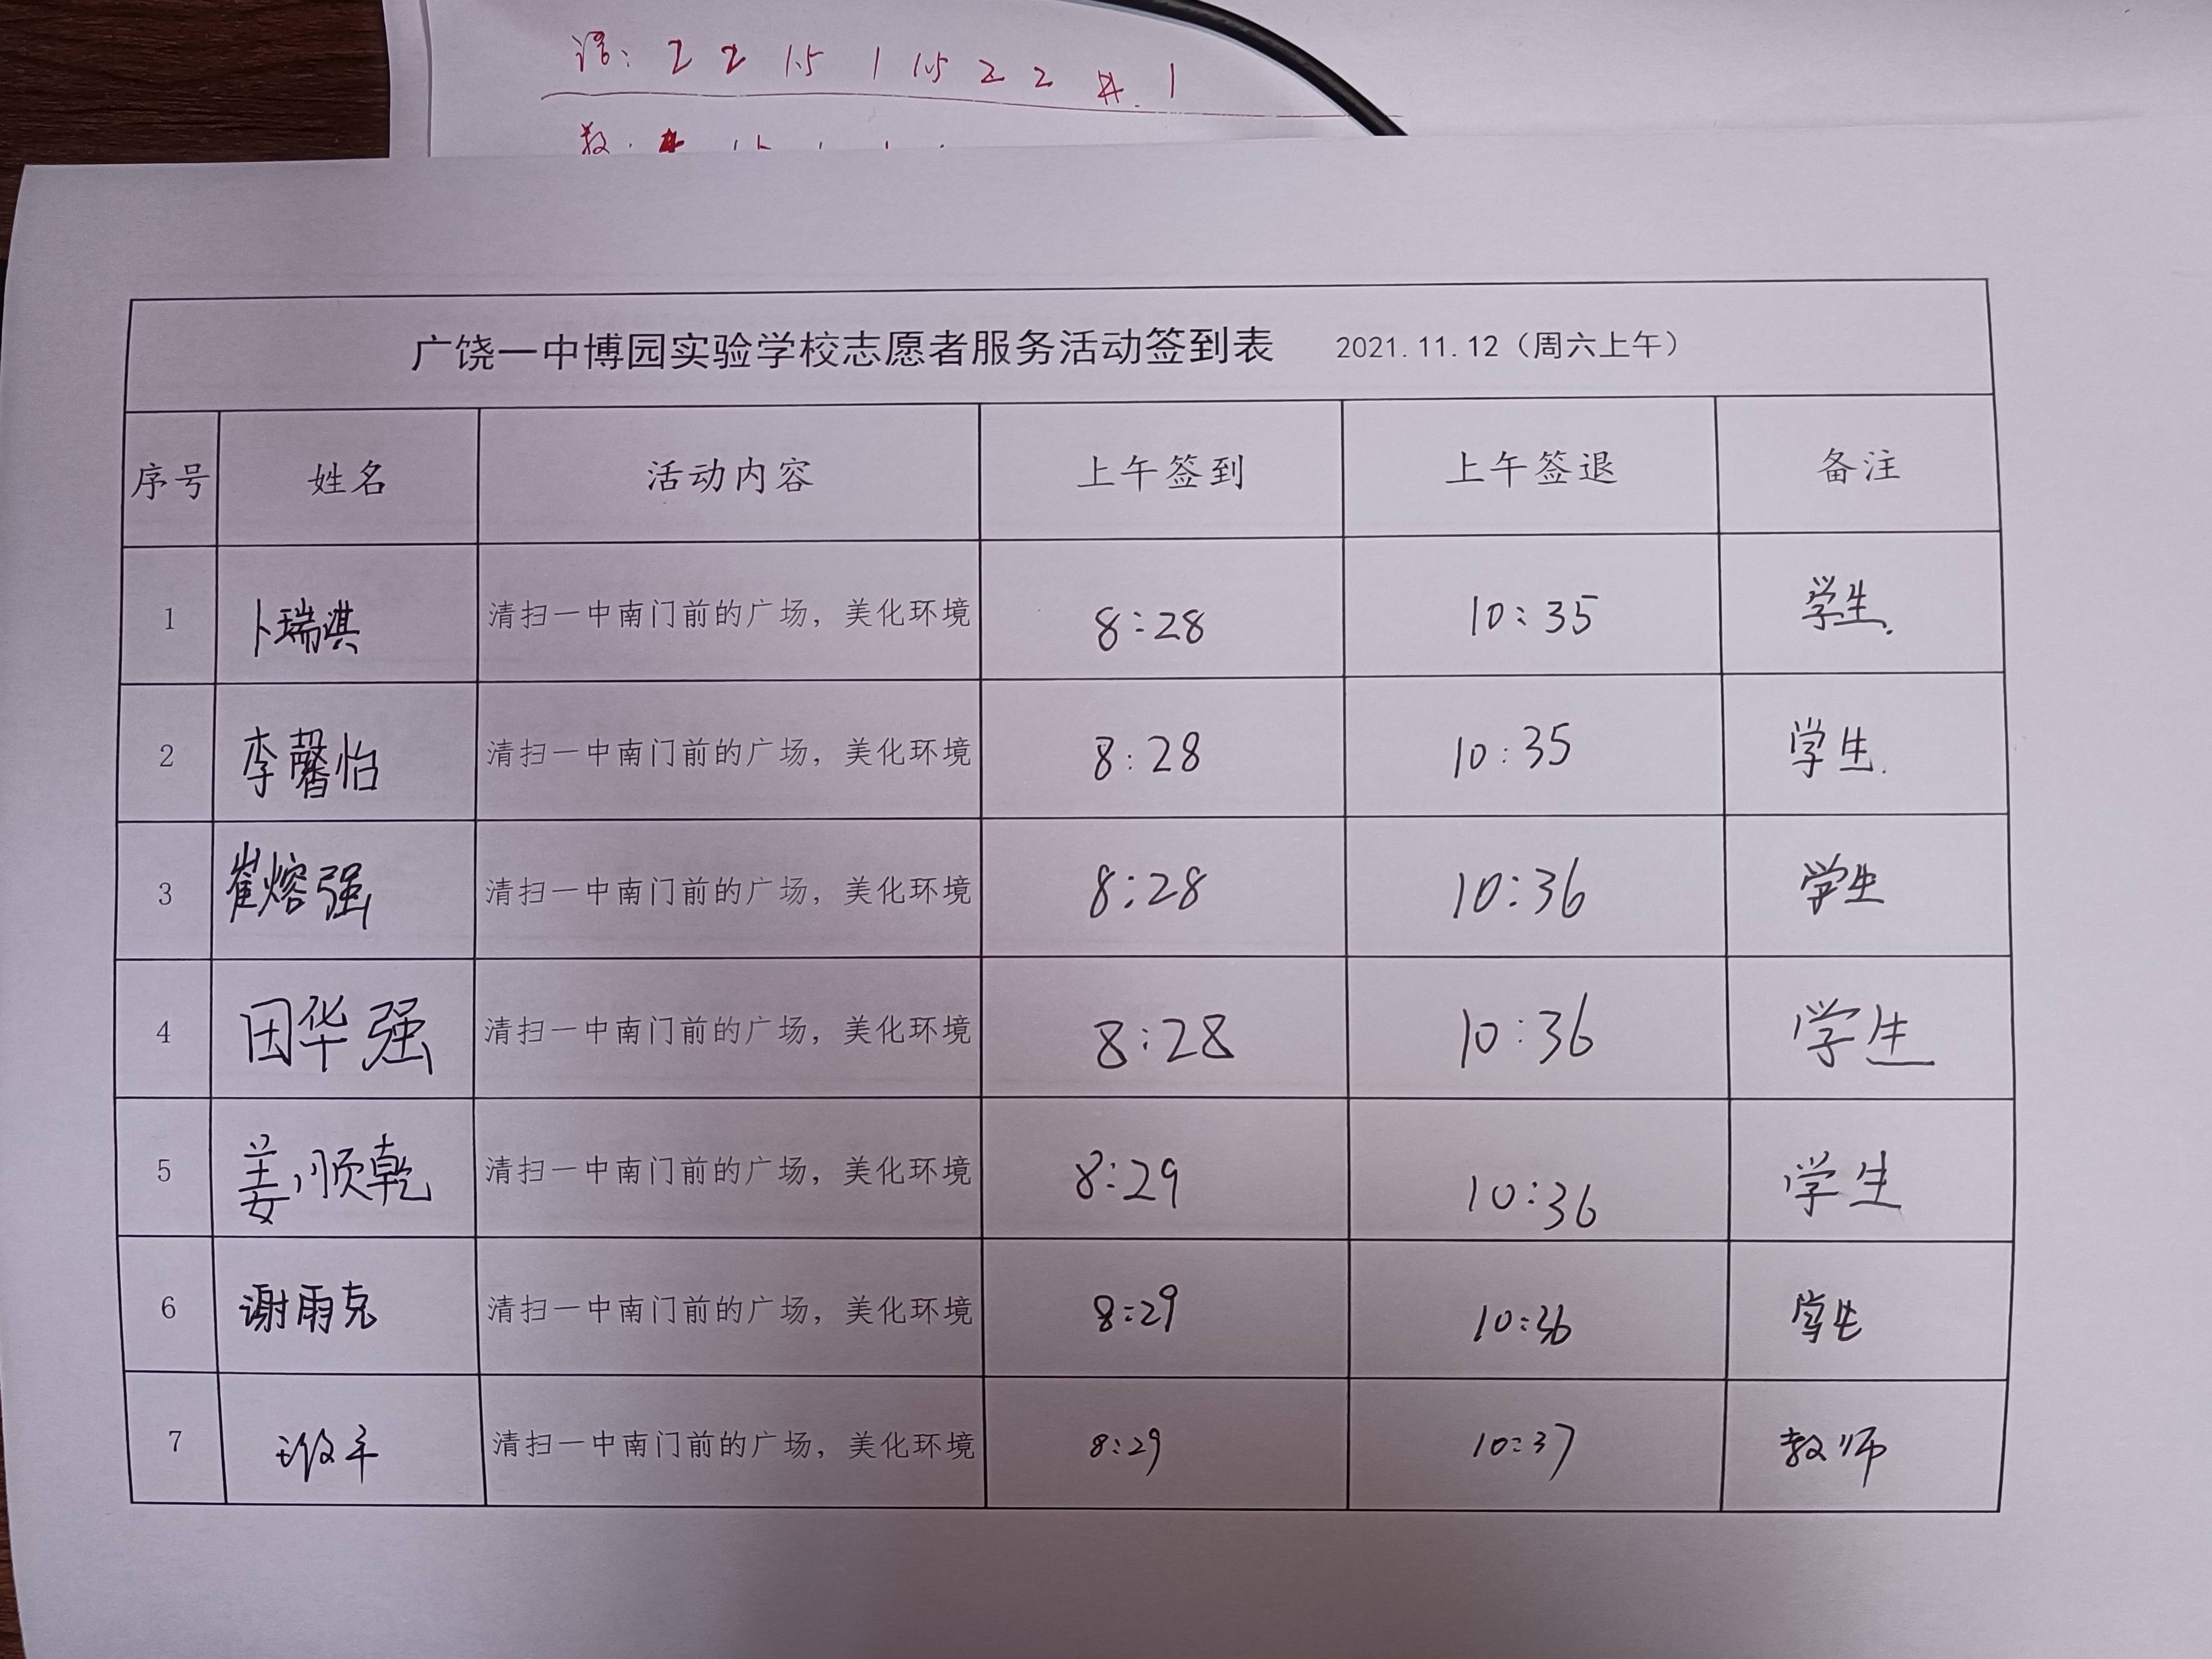 语: 2 2 1.5 1 1.5 2 2 1
数:
广饶一中博园实验学校志愿者服务活动签到表 2021.11.12（周六上午）
序号 姓名 活动内容 上午签到 上午签退 备注
1 卜瑞淇 清扫一中南门前的广场，美化环境 8:28 10:35 学生.
2 李馨怡 清扫一中南门前的广场，美化环境 8:28 10:35 学生.
3 崔熔强 清扫一中南门前的广场，美化环境 8:28 10:36 学生
4 田华强 清扫一中南门前的广场，美化环境 8:28 10:36 学生
5 姜顺乾 清扫一中南门前的广场，美化环境 8:29 10:36 学生
6 谢雨克 清扫一中南门前的广场，美化环境 8:29 10:36 学生
7 清扫一中南门前的广场，美化环境 8:29 10:37 教师